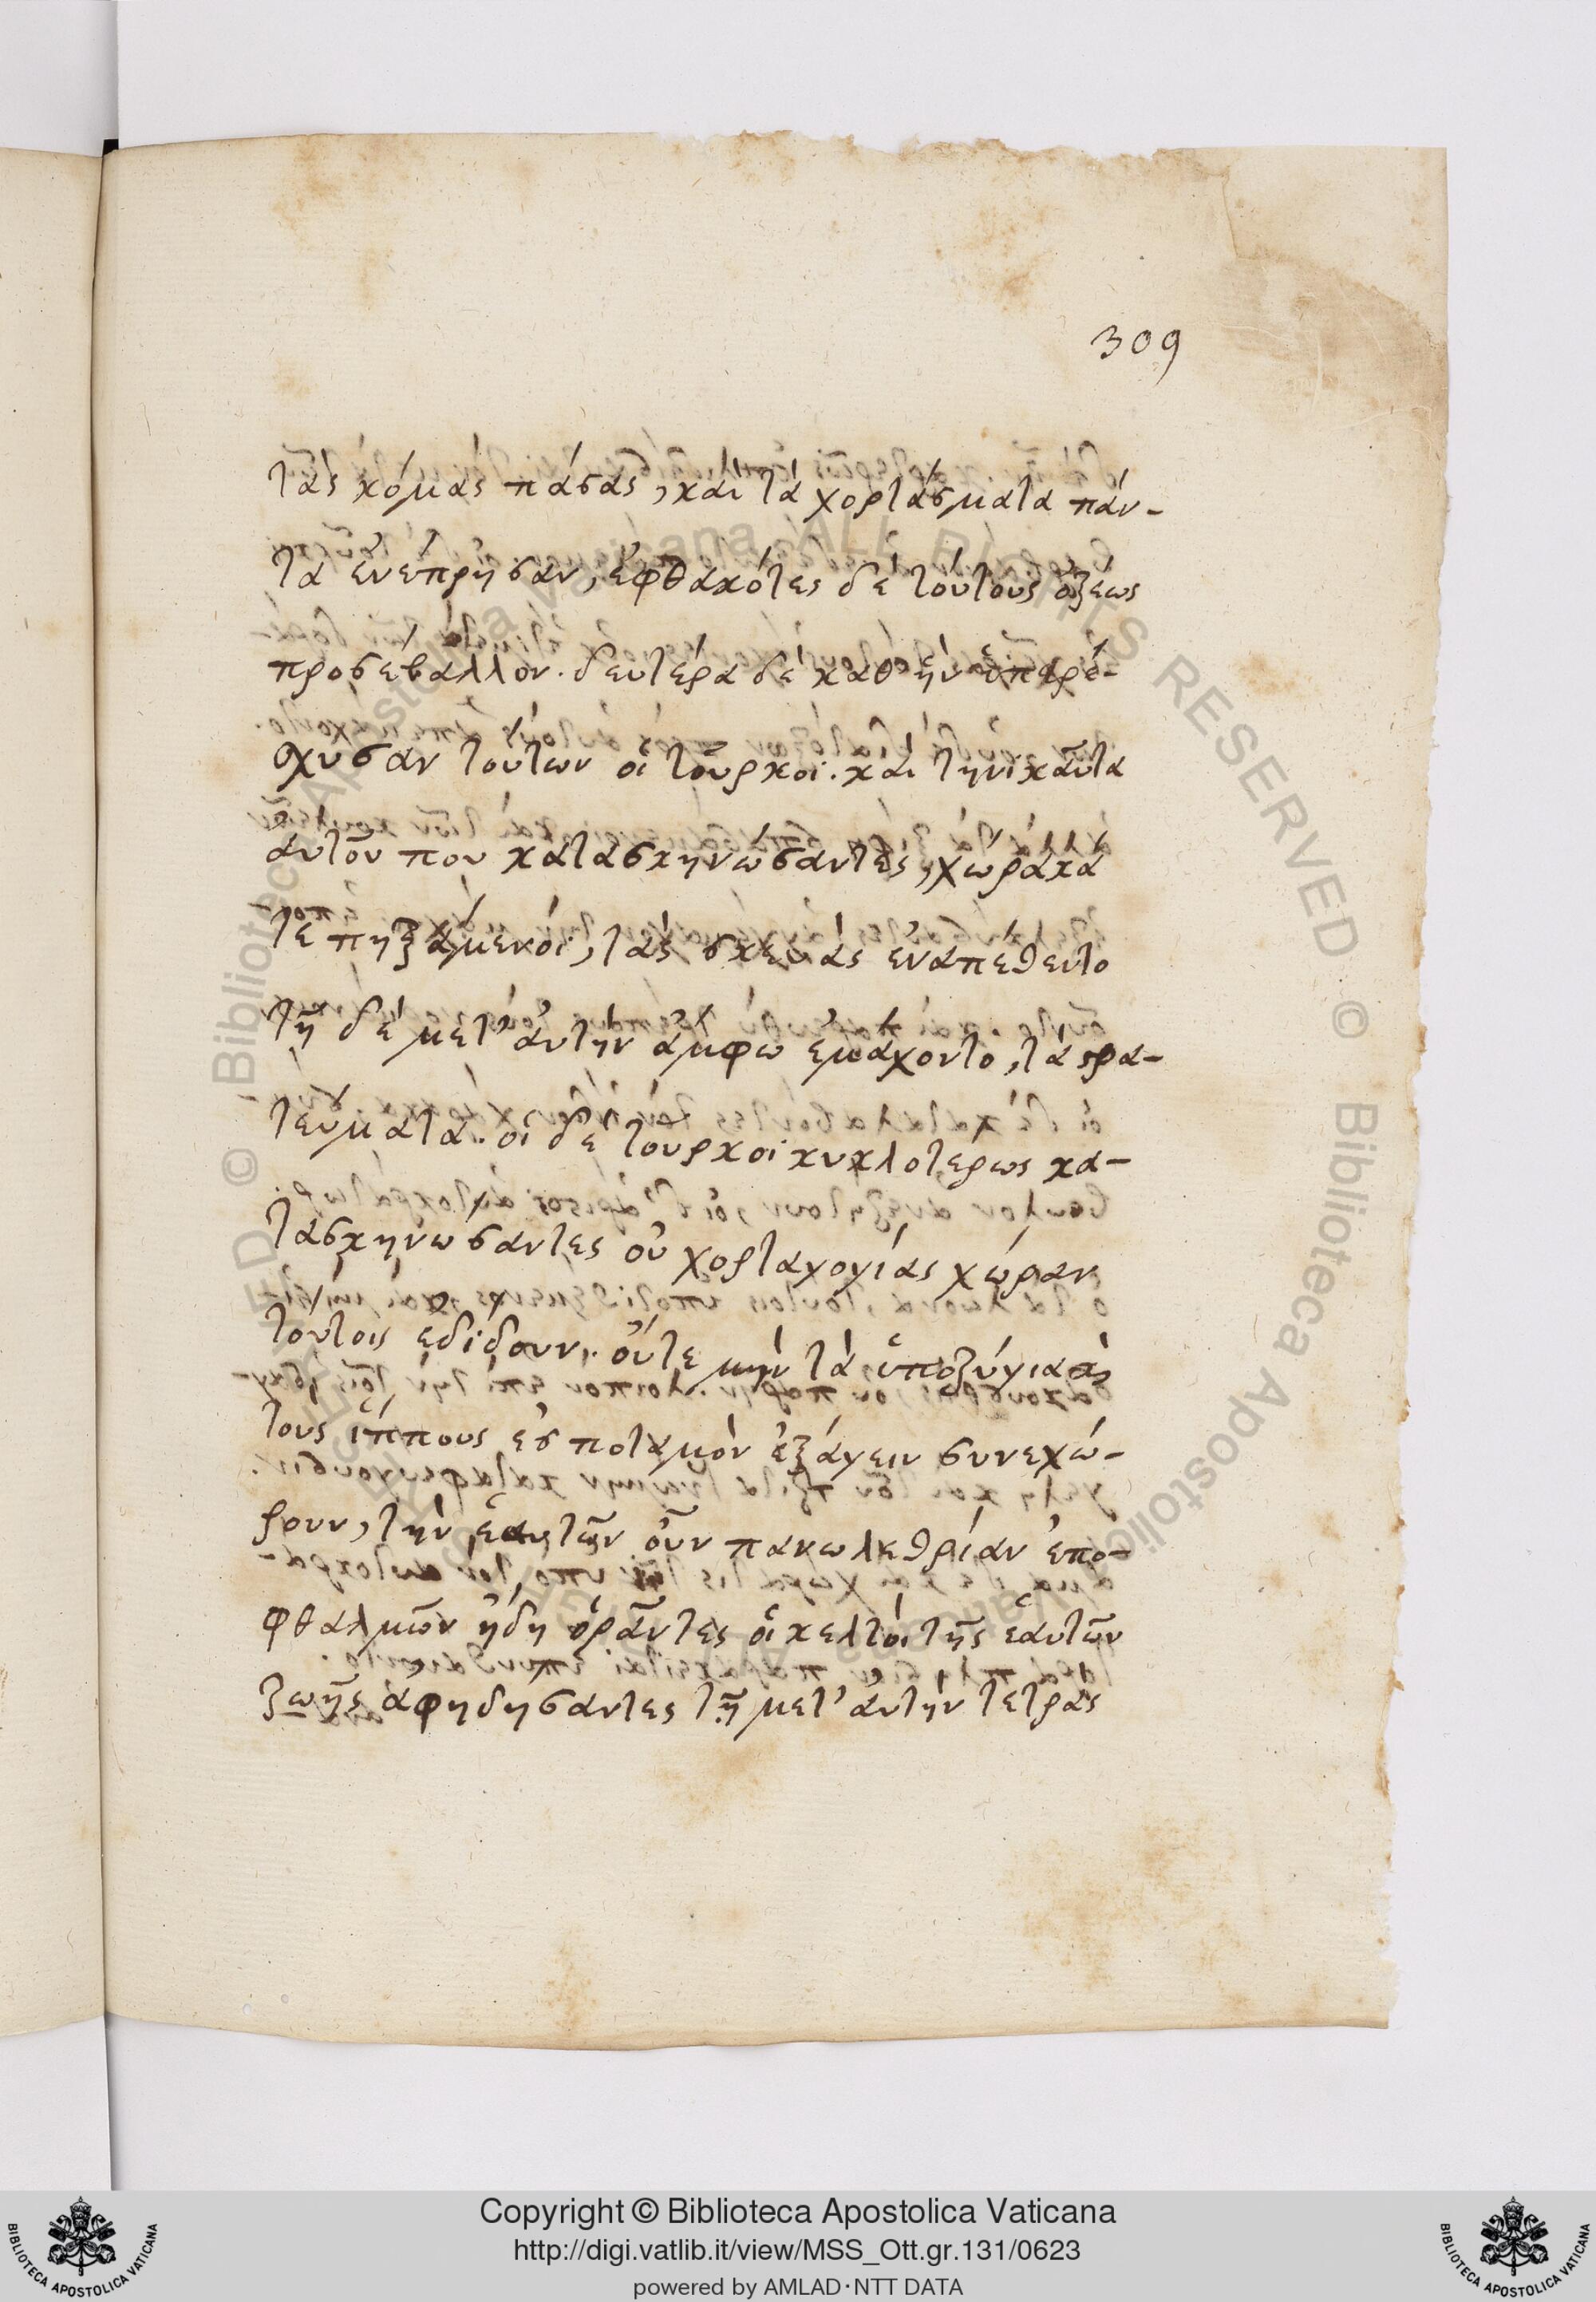 309
τὰς κόμας πάσας, καὶ τὰ χορτάσματα πάν-
τα ἐνέπρησαν, ἐφθακότες δὲ τούτους ὀξέως
προσέβαλλον. δευτέρα δὲ καθ ἣν
τούτων οἱ τοῦρκοι. καὶ τηνικαῦτα
αὐτοῦ που κατασκηνώσαντες, χώρακά
τε πηξάμενοι, τὰς σκευὰς ἐναπέθεντο
τῇ δὲ μετ' αὐτὴν ἄμφω ἐμάχοντο, τὰ στρα-
τεύματα. οἱ δὲ τοῦρκοι κυκλοτέρως κα-
τασκηνώσαντες οὐ χορταγογίας χώραν
τούτοις ἐδίδουν. οὔτε μὴν τὰ ὑποζύγια
τους ἵππους ἐσ ποταμὸν ἐξάγειν συνεχώ-
ρουν, τὴν ἑαυτῶν οὖν πανωλεθρίαν ἐπο-
φθαλμῶν ἤδη ὁρᾶντες οἱ κελτοὶ τῆς ἑαυτῶν
ζωῆς ἀφηδήσαντες τῇ μετ' αὐτὴν τετρὰς
Copyright © Biblioteca Apostolica Vaticana
http://digi.vatlib.it/view/MSS_Ott.gr.131/0623
powered by AMLAD·NTT DATA